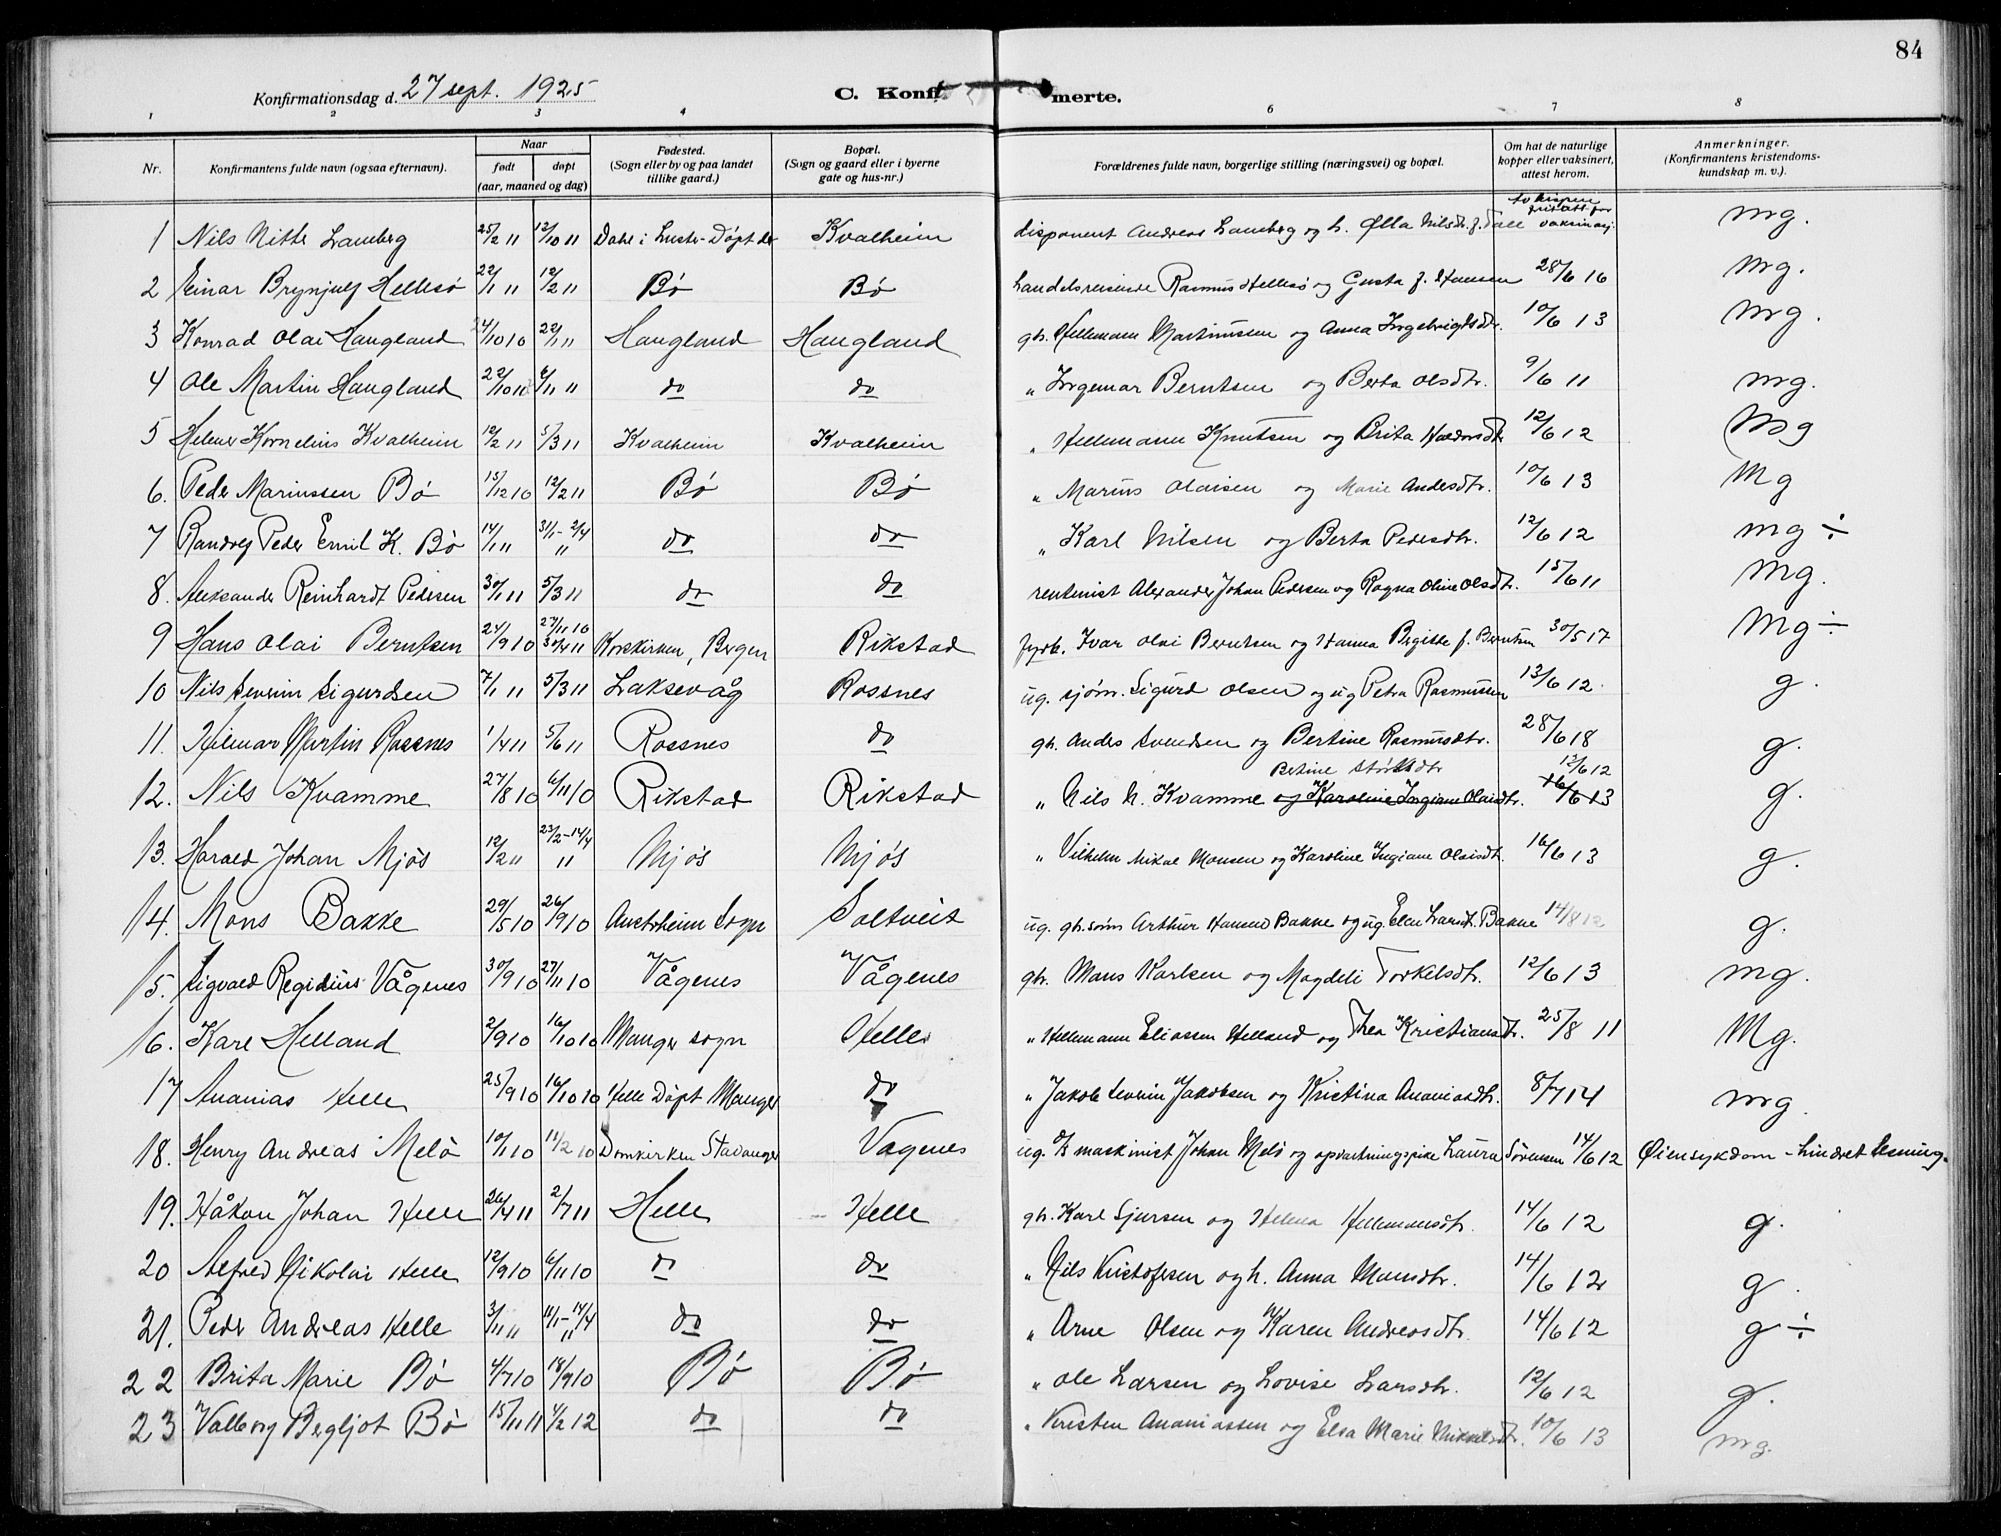 84
Konfirmationsdag d. 27 sept. 1925 C. Konfirmerte.
1 2 3 4 5 6 7 8
Nr. Konfirmantens fulde navn (ogsaa efternavn). Naar født døpt (aar, maaned og dag) Fødested. (Sogn eller by og paa landet tillike gaard.) Bopæl. (Sogn og gaard eller i byerne gate og hus-nr.) Forældrenes fulde navn, borgerlige stilling (næringsvei) og bopæl. Om hat de naturlige kopper eller vaksinert, attest herom. Anmerkninger. (Konfirmantens kristendoms-kundskap m. v.).
1 Nils Nitter Lamberg 25/2 11 12/10 11 Dale i Luster - Døpt der Kvalheim disponent Andreas Lamberg og h. Nilsdtr. f. mg.
2 Einar Brynjulf Hellesø 22/1 11 12/2 11 Bø Bø handelsreisende Rasmus Hellesø og Gusta f. Hansen 28/6 16 mg.
3 Konrad Olai Haugland 24/10 10 22/1 11 Haugland Haugland gbr. Hillemann Martinussen og Anna Ingebrigtsdtr. 10/6 13 mg.
4 Ole Martin Haugland 22/10 10 6/1 11 do do " Ingemar Berntsen og Berta Olsdtr. 9/6 11 mg.
5 Helmer Kornelius Kvalheim 12/2 11 5/3 11 Kvalheim Kvalheim " Hillemann Knutsen og Brita Haldorsdtr 12/6 12 Mg
6. Peder Marinssen Bø 15/12 10 12/2 11 Bø Bø " Marius Olaisen og Marie Andersdtr. 10/6 13 Mg
7 Randvej Peder Emil K. Bø 14/1 11 31/1 - 2/4 11 do do " Karl Nilsen og Berta Pedersdtr. 12/6 12 mg ÷
8. Aleksander Reinhardt Pedersen 30/1 11 5/3 11 do do rentenist Alexander Johan Pedersen og Ragna Oline Olsdtr. 15/6 11 Mg.
9 Hans Olai Berntsen 24/9 10 27/11 10 30/4 11 Korskirken, Bergen Rikstad fyrb. Ivar Olai Berntsen og Hanna Birgitte f. Berntsen 30/5 17 Mg ÷
10 Nils Severin Sigurdsen 7/1 11 5/3 11 Laksevåg Rossnes ug. sjøm. Sigurd Olsen og ug Petra Rasmussen 13/6 12. g.
11. Hilmar Martin Rossnes 1/4 11 5/6 11 Rossnes do gbr. Anders Svendsen og Bertine Rasmusdtr. 28/6 18 g.
12. Nils Kvamme 27/8 10 6/11 10 Rikstad Rikstad " Nils N. Kvamme og Karoline Ingiane Olaisdtr. Bertine Størksdtr 16/6 13 12/6 12 g.
13. Harald Johan Mjøs 12/2 11 23/2 - 14/4 11 Mjøs Mjøs " Vilhelm Mikal Monsen og Karoline Ingiane Olaisdtr. 16/6 13 g.
14. Mons Bakke 29/5 10 26/9 10 Austrheim Sogn Soltveit ug. gbr.søns Arthur Hansen Bakke og ug. Elen Larsdt. Bakke 14/8 12 g.
15. Sigvald Regidius Vågenes 30/9 10 27/11 10 Vågenes Vågenes gbr. Mons Karlsen og Magdeli Torkelsdtr. 12/6 13 mg.
16. Kåre Helland 2/9 10 16/10 10 Manger sogn Helle " Hillemann Eliassen Helland og Thea Kristiansdtr. 25/8 11 Mg.
17 Ananias Helle 25/9 10 16/10 10 Helle Døpt Manger do " Jakob Severin Jakobsen og Kristina Ananiasdtr. 8/7 14 mg.
18. Henry Andreas Melø 10/1 10 11/2 10 Domkirken Stavanger Vågenes ug. maskinist Johan Melø og opvartningspike Laura Sørensen 14/6 12 Øiensykdom - hindret lesning.
19. Håkon Johan Helle 26/4 11 2/7 11 Helle Helle gbr. Karl Sjursen og Helena Hillemansdtr. 14/6 12 g.
20 Alfred Nikolai Helle 12/9 10 6/11 10 do do " Nils Kristofersen og h. Anna Mansdtr. 14/6 12 g.
21. Peder Andreas Helle 3/1 11 11/1 - 14/4 11 do do " Arne Olsen og Karen Andreasdtr. 14/6 12 g ÷
22 Brita Marie Bø 4/7 10 18/9 10 Bø Bø " Ole Larsen og Lovise Larsdtr. 12/6 12 g.
23 Valborg Bergljot Bø 15/11 11 4/2 12 do do " Kristen Ananiassen og Elsa Marie Mikkelsdtr. 10/6 13 mg.